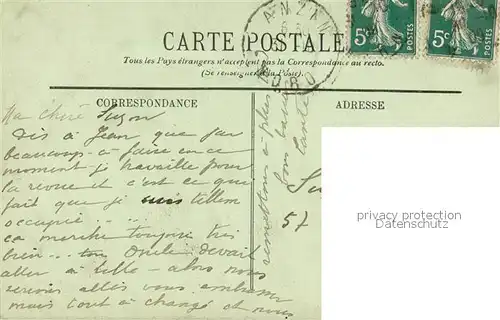 ANZIN
NORD
5c POSTES
5c POSTES
CARTE POSTALE
Tous les Pays étrangers n'acceptent pas la Correspondance au recto.
(Se renseigner à la Poste).
CORRESPONDANCE
ADRESSE
Ma chère Suzon
Dis à Jean que j'ai
beaucoup à faire en ce
moment je travaille pour
la revue et c'est ce qui
fait que je suis tellem
occupée
ça marche toujours très
bien ton oncle devait
aller à Lille alors nous
serions allés vous embrasser
mais tout a changé et nous
à plus
57
privacy protection
Datenschutz